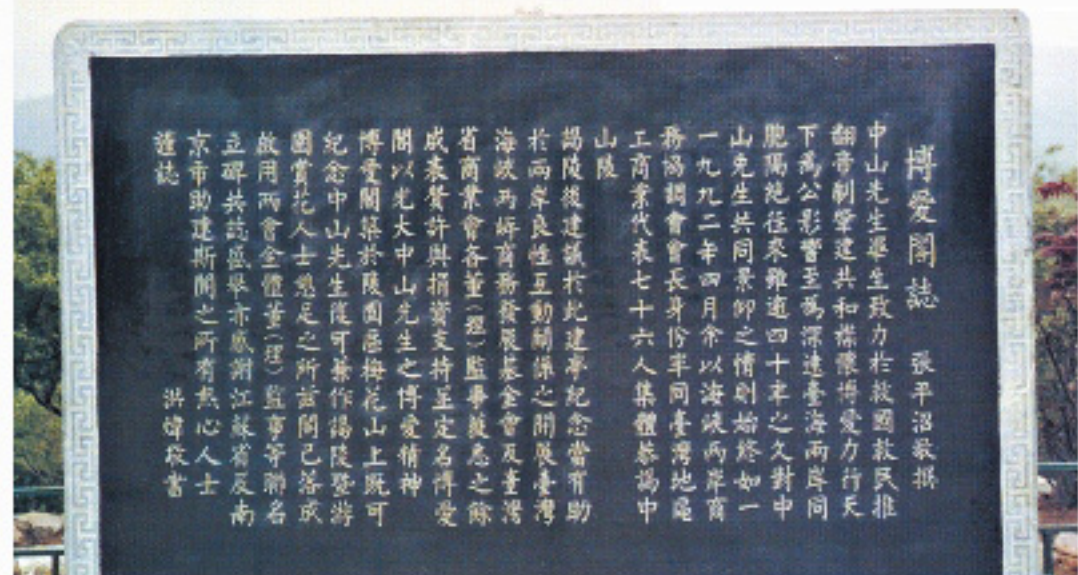 博愛閣誌 張平沼敬撰
中山先生畢生致力於救國救民推
翻帝制肇建共和襟懷博愛力行天
下為公影響至為深遠臺海兩岸同
胞隔絶往來雖逾四十年之久對中
山先生共同景仰之情則始終如一
一九九二年四月余以海峽兩岸商
務協調會會長身份率同臺灣地區
工商業代表七十六人集體恭謁中
山陵
謁陵後建議於此建亭紀念當有助
於兩岸良性互動關係之開展臺灣
海峽兩岸商務發展基金會及臺灣
省商業會各董(理)監事獲悉之餘
咸表贊許與捐資支持並定名博愛
閣以光大中山先生之博愛精神
博愛閣築於陵園區梅花山上既可
紀念中山先生復可兼作謁陵暨游
園賞花人士憩足之所茲閣已落成
啟用兩會全體董(理)監事等聯名
立碑共
盛舉亦感謝江蘇省及南
京市助建斯閣之所有熱心人士
謹誌 洪煒
書